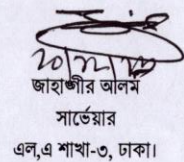 জাহাঙ্গীর আলম
সার্ভেয়ার
এল,এ শাখা-৩, ঢাকা।